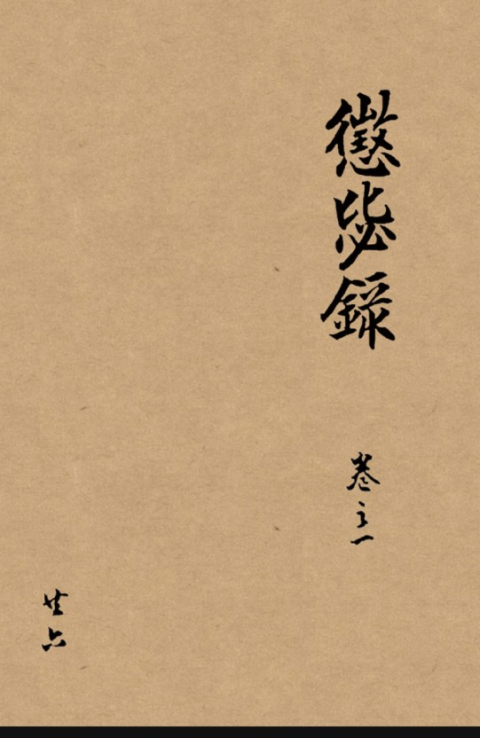 懲毖錄
卷之一
廿六